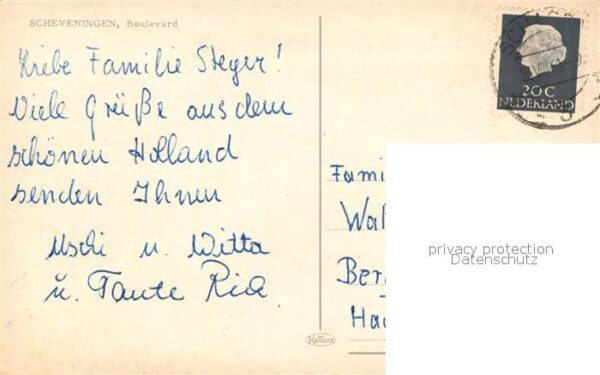 SCHEVENINGEN, Boulevard
Liebe Familie Steger!
Viele Grüße aus dem
schönen Holland
senden Ihnen
Uschi u. Witta
u. Tante Ria
20C
NEDERLAND
Fami
Wal
Ber
Ha
privacy protection
Datenschutz
Krüger